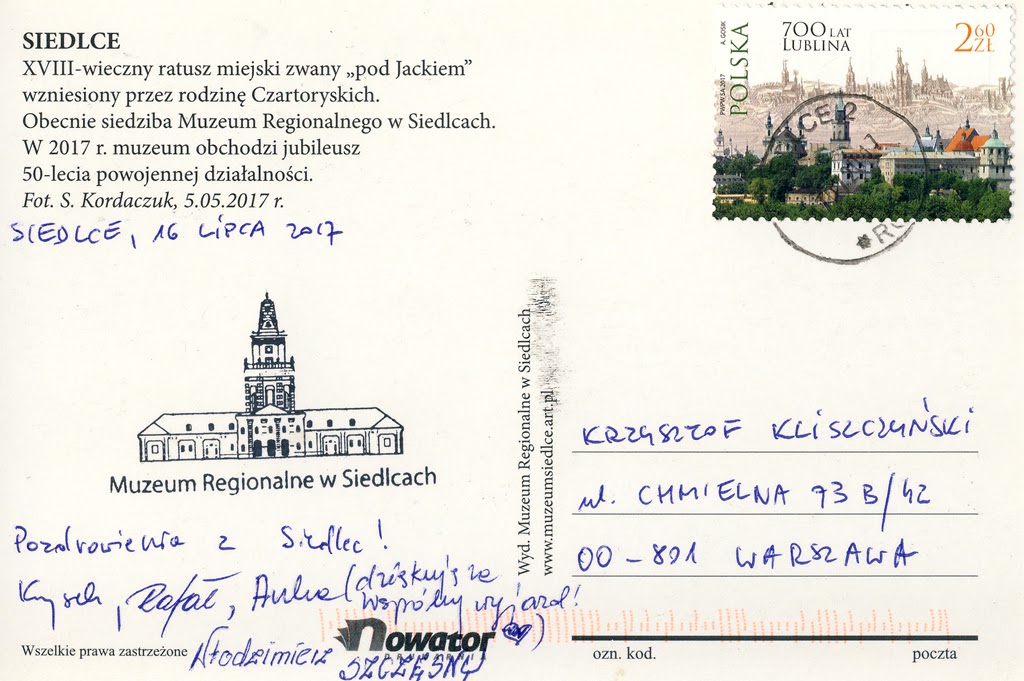 SIEDLCE
XVIII-wieczny ratusz miejski zwany „pod Jackiem”
wzniesiony przez rodzinę Czartoryskich.
Obecnie siedziba Muzeum Regionalnego w Siedlcach.
W 2017 r. muzeum obchodzi jubileusz
50-lecia powojennej działalności.
Fot. S. Kordaczuk, 5.05.2017 r.
SIEDLCE, 16 LIPCA 2017
Muzeum Regionalne w Siedlcach
Pozdrowienia z Siedlec!
Krzysiek, Rafał, Anka (dziękuję za
wspólny wyjazd!
)
Włodzimierz
SZCZĘSNY
Wszelkie prawa zastrzeżone
nowator
Wyd. Muzeum Regionalne w Siedlcach
www.muzeumsiedlce.art.pl
POLSKA
A. GOSK
PWPW.SA.2017
700 LAT
LUBLINA
260
ZŁ
LCE 2
KRZYSZTOF KLISZCZYŃSKI
ul. CHMIELNA 73 B/42
00-801 WARSZAWA
ozn. kod.
poczta